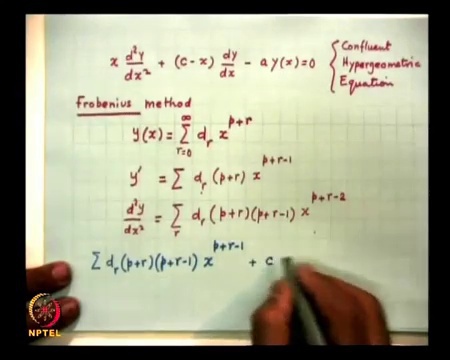 x d²y/dx² + (c-x) dy/dx - a y(x) = 0 { Confluent Hypergeometric Equation }
Frobenius method
y(x) = Σ_{r=0}^{∞} d_r x^{p+r}
y' = Σ_r d_r (p+r) x^{p+r-1}
d²y/dx² = Σ_r d_r (p+r)(p+r-1) x^{p+r-2}
Σ d_r (p+r)(p+r-1) x^{p+r-1} + c
NPTEL